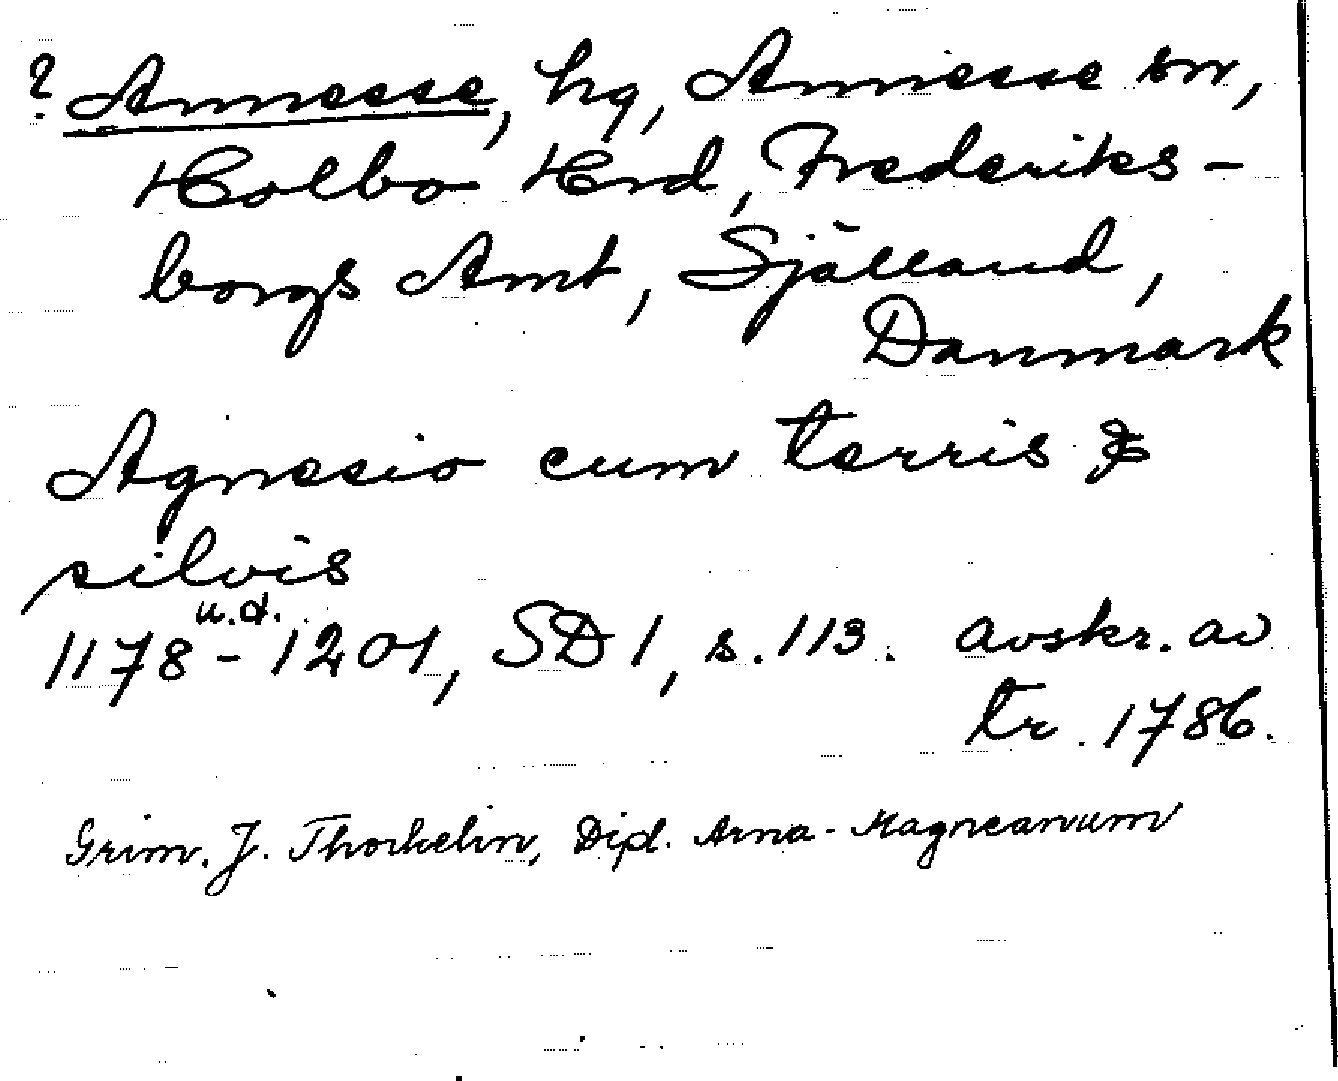 ? Annesse, hg, Annesse sn,
Holbo Hrd, Frederiks-
borgs Amt, Själland,
Danmark
Agnesio cum terris &
silvis
u.d.
1178-1201, SD 1, s. 113. avskr. av
tr. 1786.
Grim. J. Thorkelin, Dipl. Arna-Magneanum